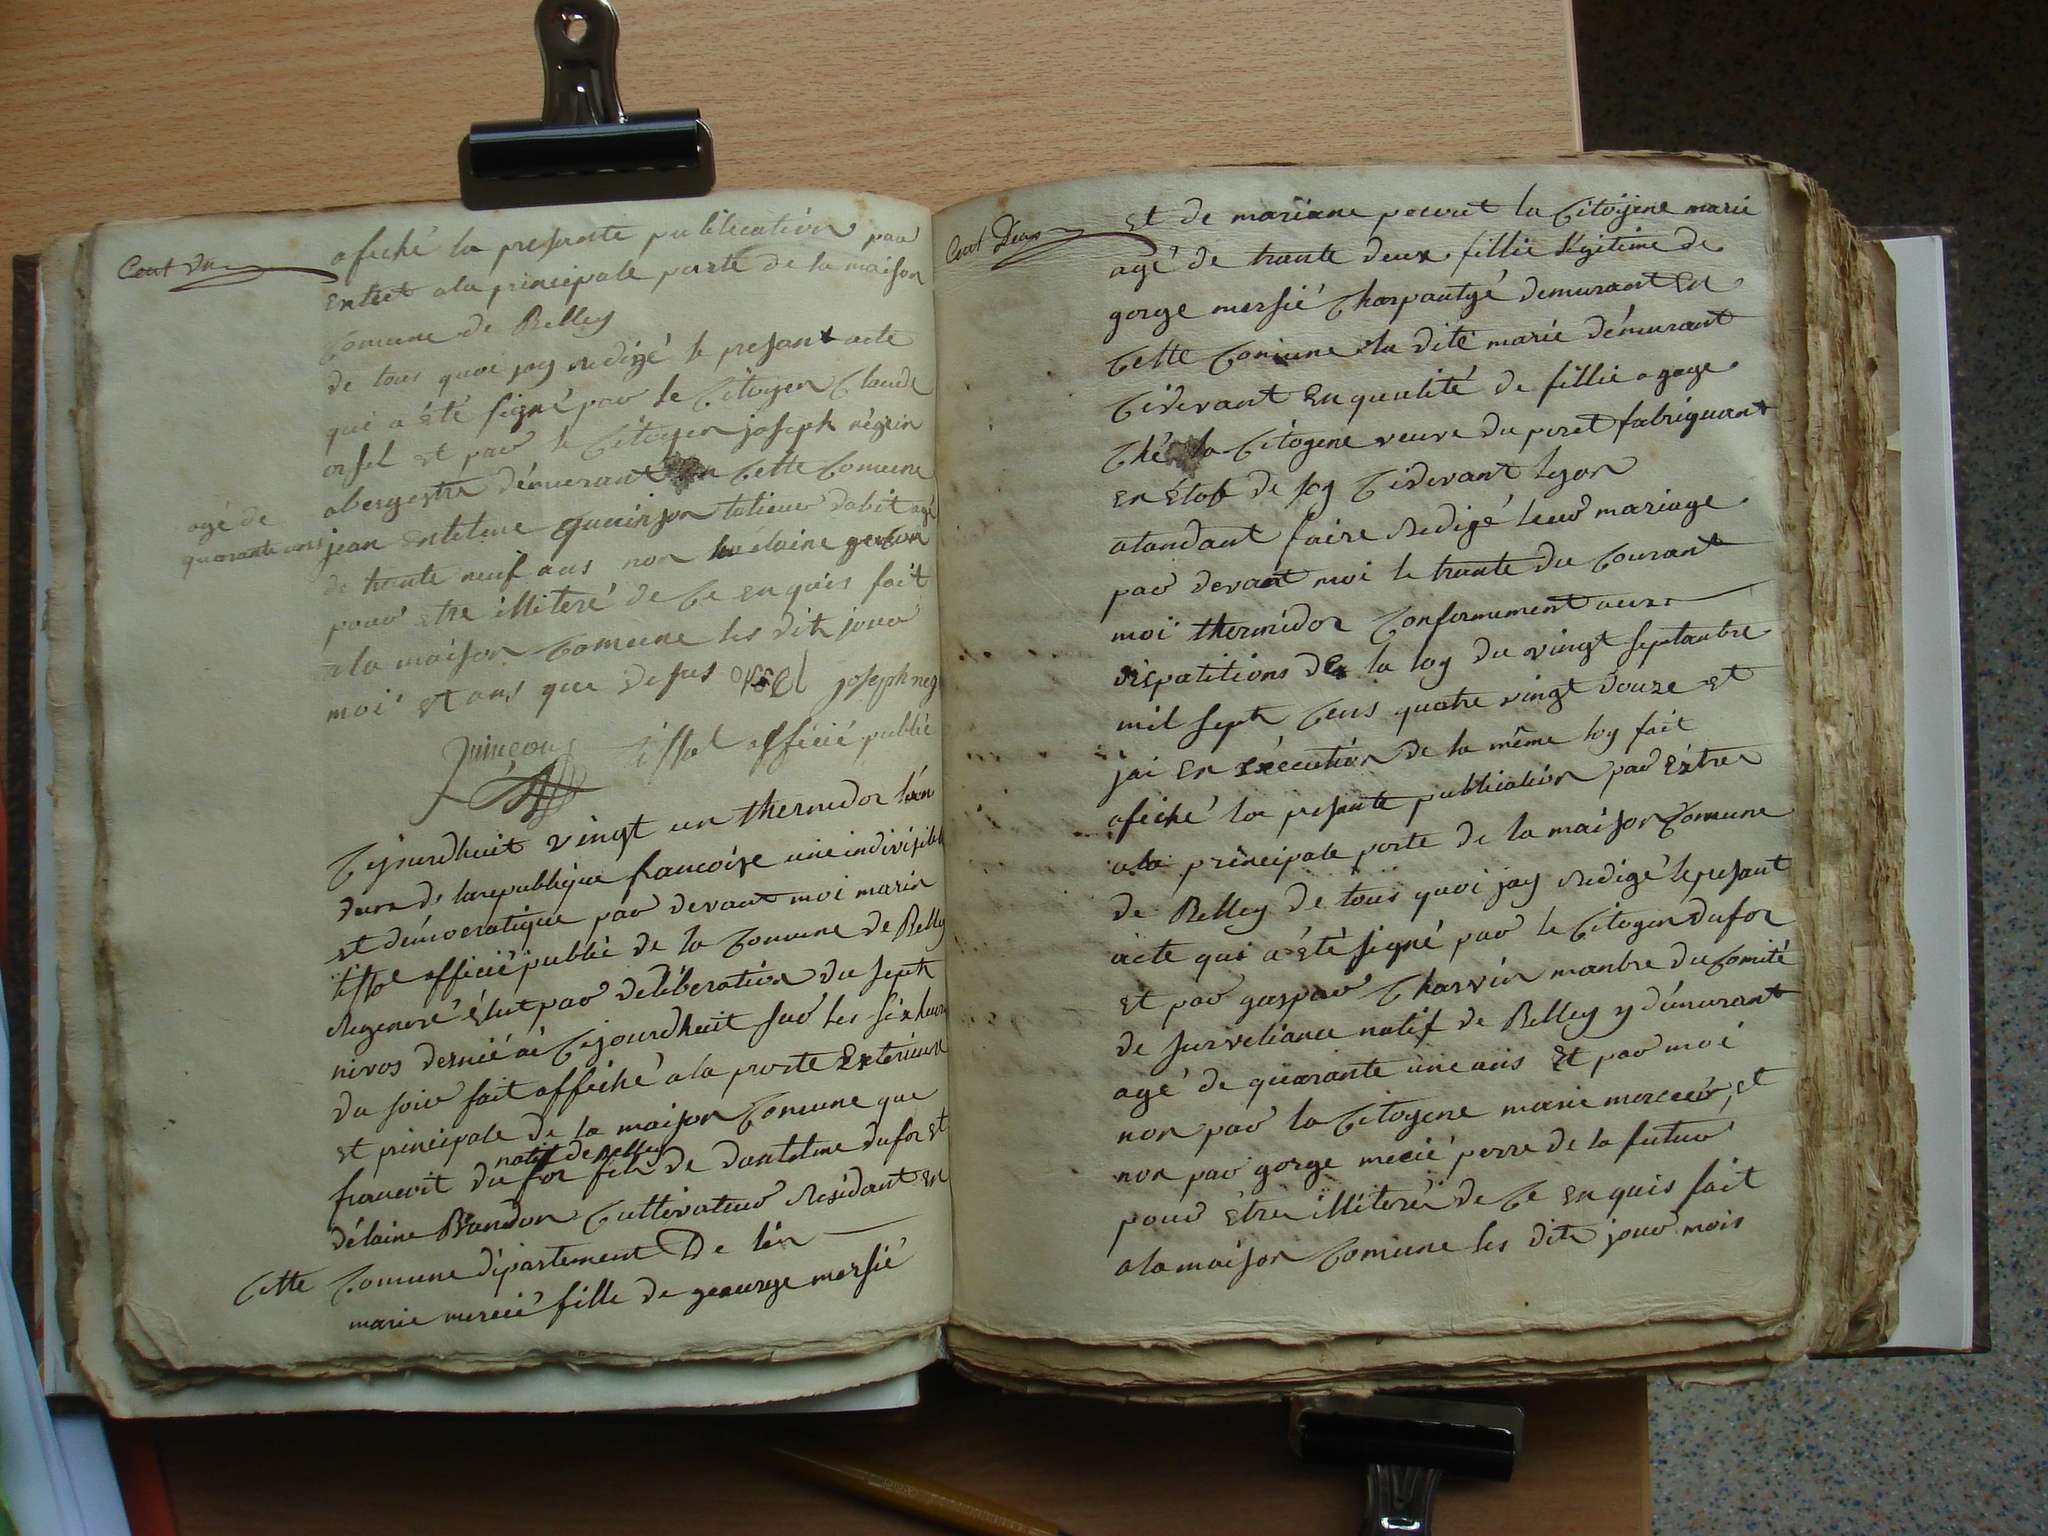 Cent un
afiché la presante publication par
Extret a la principale porte de la maison
Comune de Belley
de tous quoi jay redigé le presant acte
qui a été signé par le Citoyen Claude
orsel et par le Citoyen joseph négrin
abergestre démurant En Cette Comune
agé de
quarante ans jean Entelme quinson talieur dabit agé
de trante neuf ans non
pour Etre illiteré de Ce Enquis fait
a la maison Comune les dits jour
moi et ans que desus orsel joseph neg
quinçon tissol officié publié
Cejourdhuit vingt un thermidor lan
deux de la republique francoise une indivisible
et démocratique par devant moi marin
tissol officié publié de la Comune de Belley
Regeneré Elut par deliberation du sept
nivos dernié ai Cejourdhuit sur les six heure
du soir fait affiché a la porte Exterieure
et principale de la maison Comune que
natif de Belley
francoit dufor fils de dantelme dufor et
délaine Bandon Cultivateur Residant en
Cette Comune département De lin
marie mercié fille de geourge mersié
Cent Deux
et de mariane pecout la Citoyene marie
agé de trante deux fillie légitime de
gorge mersié Charpantyé demurant En
Cette Comune la dite marie démurant
Cidevant En qualité de fillie a gage
Ché la Citoyene veuve du poret fabriquant
en Étof de soy Cidevant lyon
atandant faire Redigé leur mariage
par devant moi le trante du Courant
moi thermidor Conformement aux
dispatitions de la loy du vingt septambre
mil sept Cens quatre vingt douze et
jai En exécution de la même loy fait
afiché la presante publication par Extre
a la principale porte de la maison Comune
de Belley de tous quoi jay Redigé le presant
acte qui a été signé par le Citoyen dufor
et par gaspar Charvin manbre du Comité
de surveliance natif de Belley y démurant
agé de quarante une ans et par moi
non par la Citoyene marie mercier, et
non par gorge mecié perre de la futur
pour être illiteré de Ce Enquis fait
a la maison Comune les dits jour mois